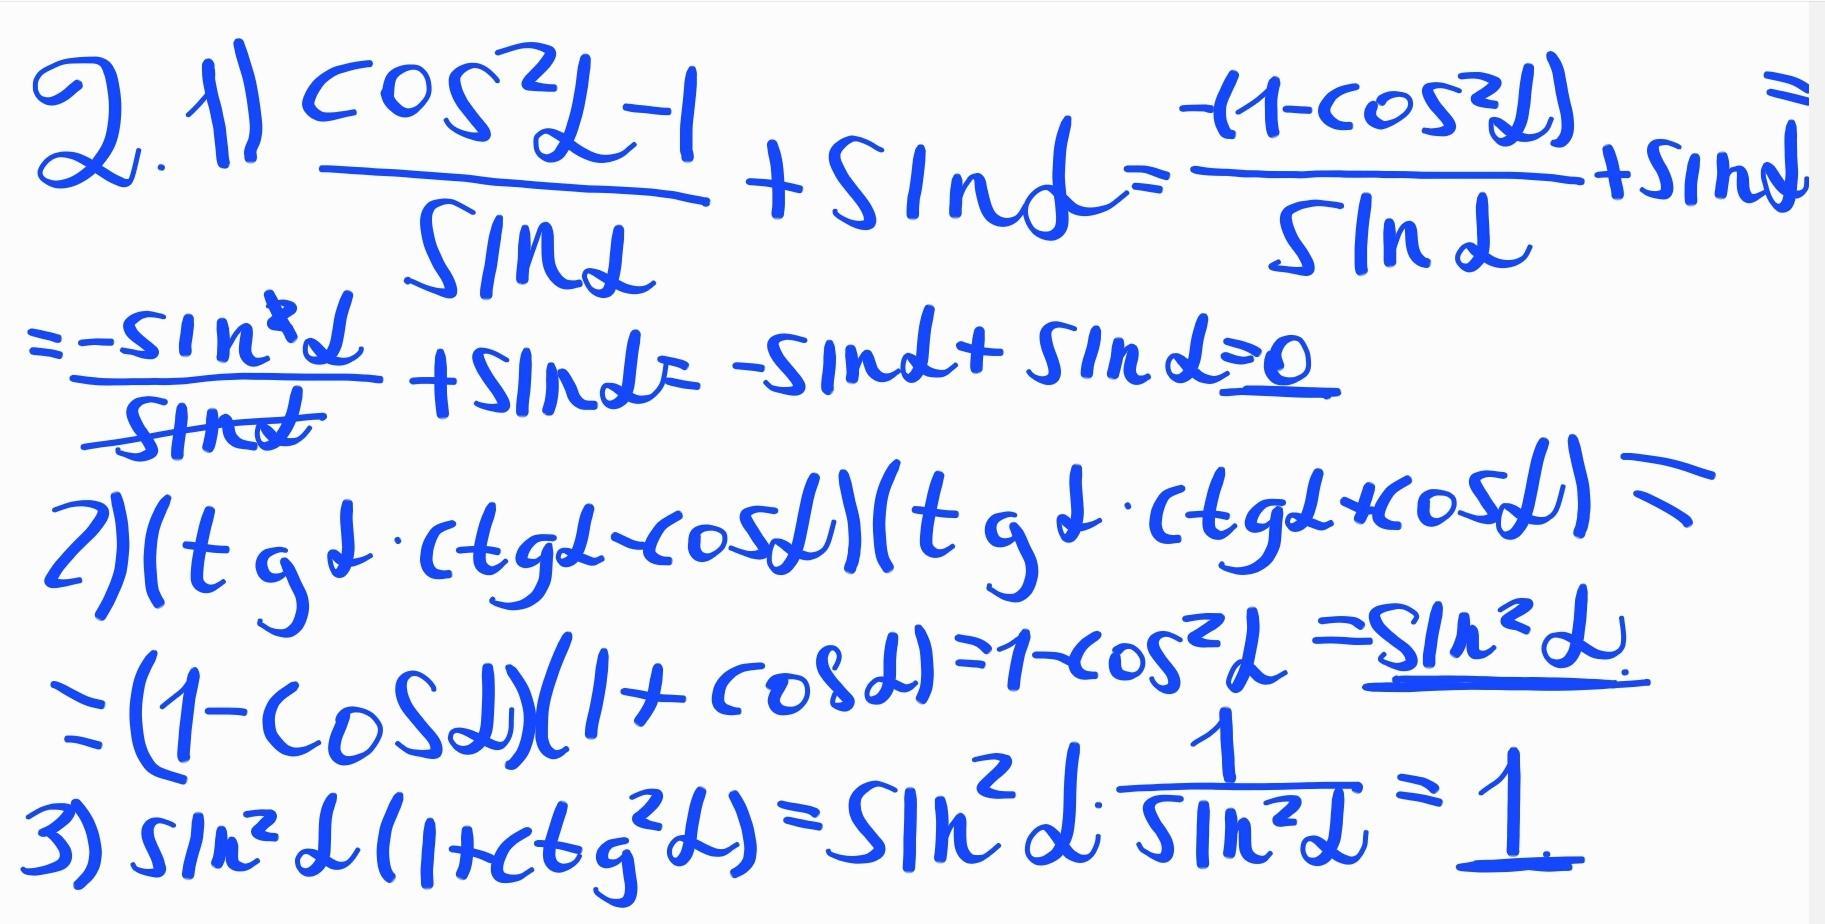 2. 1) (cos²α-1)/(sinα) + sinα = (-(1-cos²α))/(sinα) + sinα =
= (-sin²α)/(sinα) + sinα = -sinα + sinα = 0
2) (tgα · ctgα - cosα)(tgα · ctgα + cosα) =
= (1-cosα)(1+cosα) = 1-cos²α = sin²α.
3) sin²α(1+ctg²α) = sin²α · 1/(sin²α) = 1.